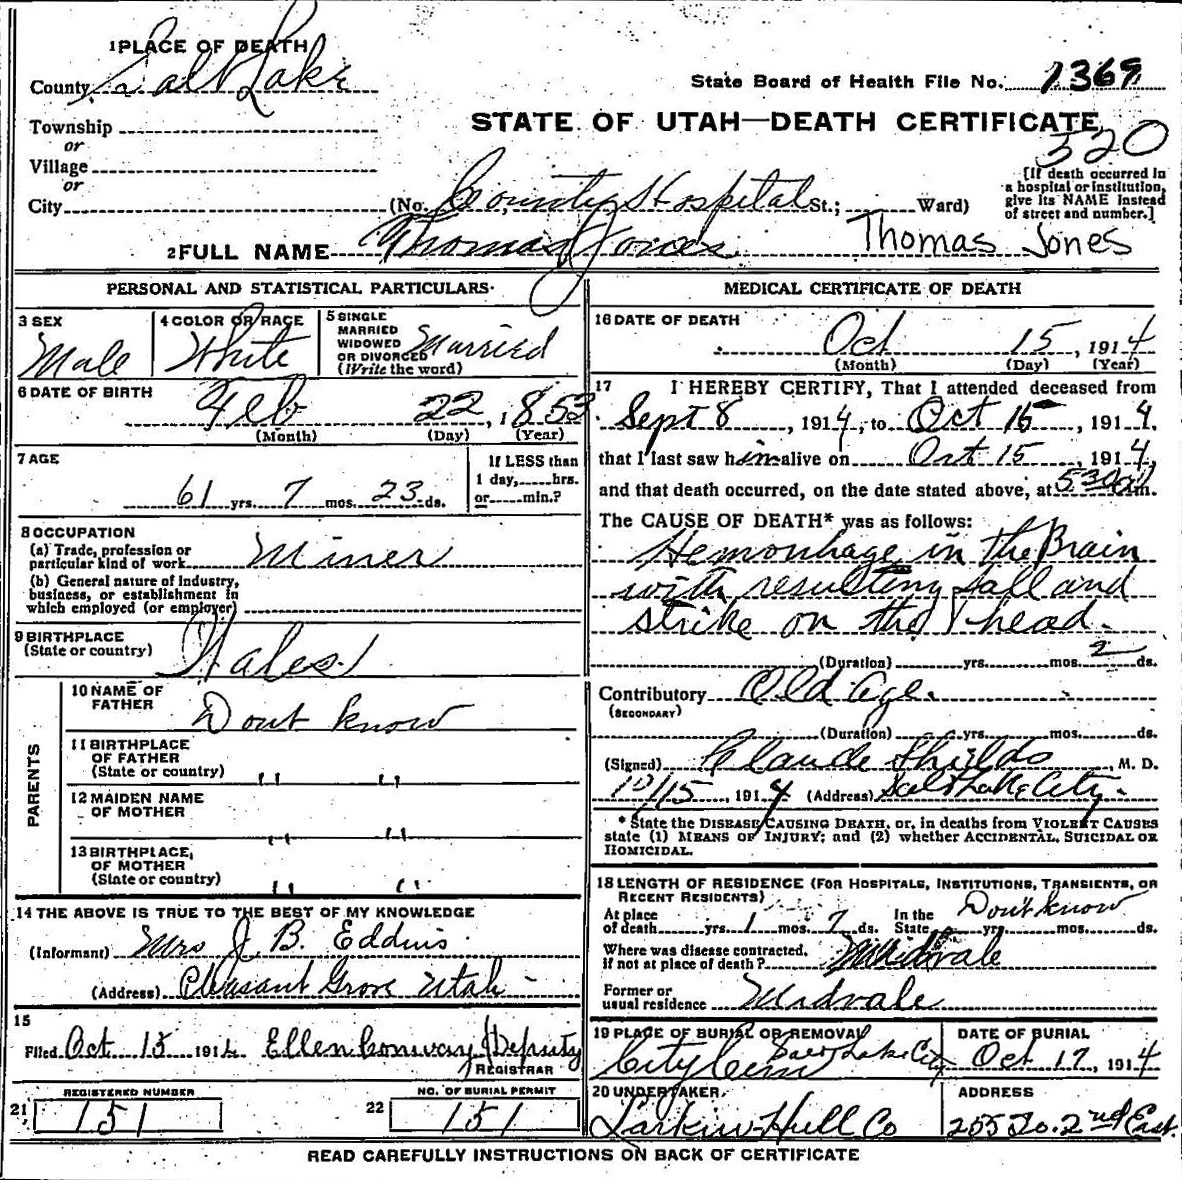 1 PLACE OF DEATH
County Salt Lake
State Board of Health File No. 1369
Township
STATE OF UTAH—DEATH CERTIFICATE
or
320
Village
or
City (No. County Hospital St.; Ward)
[If death occurred in
a hospital or institution,
give its NAME instead
of street and number.]
2 FULL NAME Thomas Jones Thomas Jones
PERSONAL AND STATISTICAL PARTICULARS
3 SEX
Male
4 COLOR OR RACE
White
5 SINGLE
MARRIED
WIDOWED
OR DIVORCED
(Write the word)
Married
6 DATE OF BIRTH
Feb 22, 1853
(Month) (Day) (Year)
7 AGE
61 yrs. 7 mos. 23 ds.
If LESS than
1 day, hrs.
or min.?
8 OCCUPATION
(a) Trade, profession or
particular kind of work Miner
(b) General nature of industry,
business, or establishment in
which employed (or employer)
9 BIRTHPLACE
(State or country) Wales
PARENTS
10 NAME OF
FATHER Dont know
11 BIRTHPLACE
OF FATHER
(State or country) " "
12 MAIDEN NAME
OF MOTHER " "
13 BIRTHPLACE,
OF MOTHER
(State or country) " "
14 THE ABOVE IS TRUE TO THE BEST OF MY KNOWLEDGE
(Informant) Mrs J. B. Eddins
(Address) Pleasant Grove Utah
15
Filed Oct 15 1914 Ellen Conway Deputy
REGISTRAR
REGISTERED NUMBER
21 151
NO. OF BURIAL PERMIT
22 151
MEDICAL CERTIFICATE OF DEATH
16 DATE OF DEATH
Oct 15, 1914
(Month) (Day) (Year)
17 I HEREBY CERTIFY, That I attended deceased from
Sept 8, 1914, to Oct 15, 1914,
that I last saw him alive on Oct 15, 1914,
and that death occurred, on the date stated above, at 530 a m.
The CAUSE OF DEATH* was as follows:
Hemorrhage in the Brain
with resulting fall and
strike on the head.
(Duration) yrs. mos. 2 ds.
Contributory Old age.
(SECONDARY)
(Duration) yrs. mos. ds.
(Signed) Claude Shields, M. D.
10/15, 1914 (Address) Salt Lake City.
* State the DISEASE CAUSING DEATH, or, in deaths from VIOLENT CAUSES
state (1) MEANS OF INJURY; and (2) whether ACCIDENTAL, SUICIDAL OR
HOMICIDAL.
18 LENGTH OF RESIDENCE (FOR HOSPITALS, INSTITUTIONS, TRANSIENTS, OR
RECENT RESIDENTS)
At place
of death yrs. 1 mos. 7 ds.
In the
State yrs. mos. ds.
Don't know
Where was disease contracted,
if not at place of death? Midvale
Former or
usual residence Midvale
19 PLACE OF BURIAL OR REMOVAL
City Cem Salt Lake City
DATE OF BURIAL
Oct 17, 1914
20 UNDERTAKER,
Larkin-Hull Co
ADDRESS
255 So. 2nd East.
READ CAREFULLY INSTRUCTIONS ON BACK OF CERTIFICATE